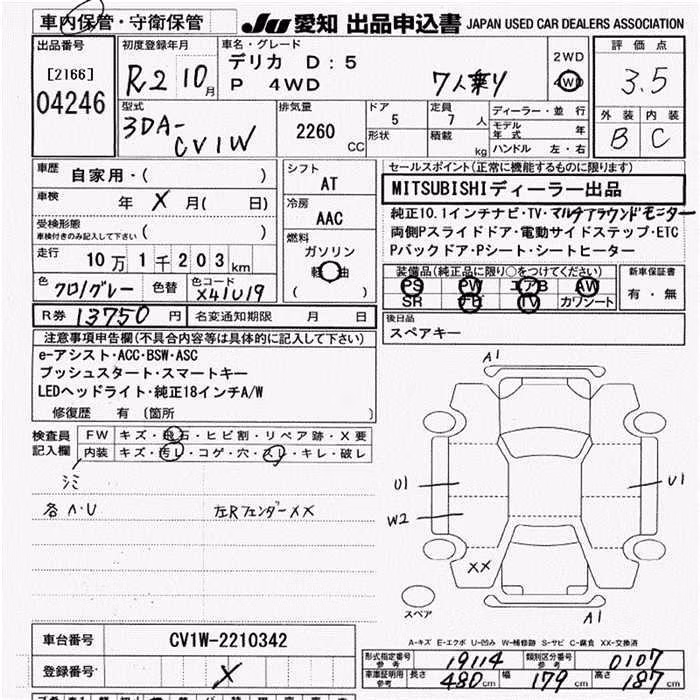 車内保管・守衛保管
JU 愛知 出品申込書 JAPAN USED CAR DEALERS ASSOCIATION
出品番号
[2166]
04246
初度登録年月
R2 10月
車名・グレード
デリカ D:5
P 4WD 7人乗り
2WD
4WD
評価点
3.5
外装 内装
B C
型式
3DA-CV1W
排気量
2260 CC
ドア
5
形状
定員
7 人
積載
kg
ディーラー・並行
モデル年式 年
ハンドル 左・右
車歴
自家用・( )
車検
年 X 月( 日)
受検形態
車検付きのみ記入して下さい ( )
走行
10万1千203km
色
クロ/グレー
色替
色コード
X41U19
シフト
AT
冷房
AAC
燃料
ガソリン
軽油
( )
セールスポイント(正常に機能するものに限ります)
MITSUBISHIディーラー出品
純正10.1インチナビ・TV・マルチアラウンドモニター
両側Pスライドドア・電動サイドステップ・ETC
Pバックドア・Pシート・シートヒーター
装備品(純正品に限り○をつけてください)
PS PW エアB AW
SR TV カワシート
新車保証書
有・無
R券 13750 円
名変通知期限 月 日
後日品
スペアキー
注意事項申告欄(不具合内容等は具体的に記入して下さい)
e-アシスト・ACC・BSW・ASC
プッシュスタート・スマートキー
LEDヘッドライト・純正18インチA/W
修復歴 有 〔箇所 〕
検査員記入欄
FW キズ・飛石・ヒビ割・リペア跡・X要
内装 キズ・汚レ・コゲ・穴・スレ・キレ・破レ
各 A・U
左Rフェンダー XX
A1
U1
U1
W2
XX
A1
スペア
A-キズ E-エクボ U-凹み W-補修跡 S-サビ C-腐食 XX-交換済
車台番号 CV1W-2210342
登録番号 X
形式指定番号 参考 19114
類別区分番号 参考 0107
車庫証明用 参考 長さ 480cm 幅 179cm 高さ 187cm